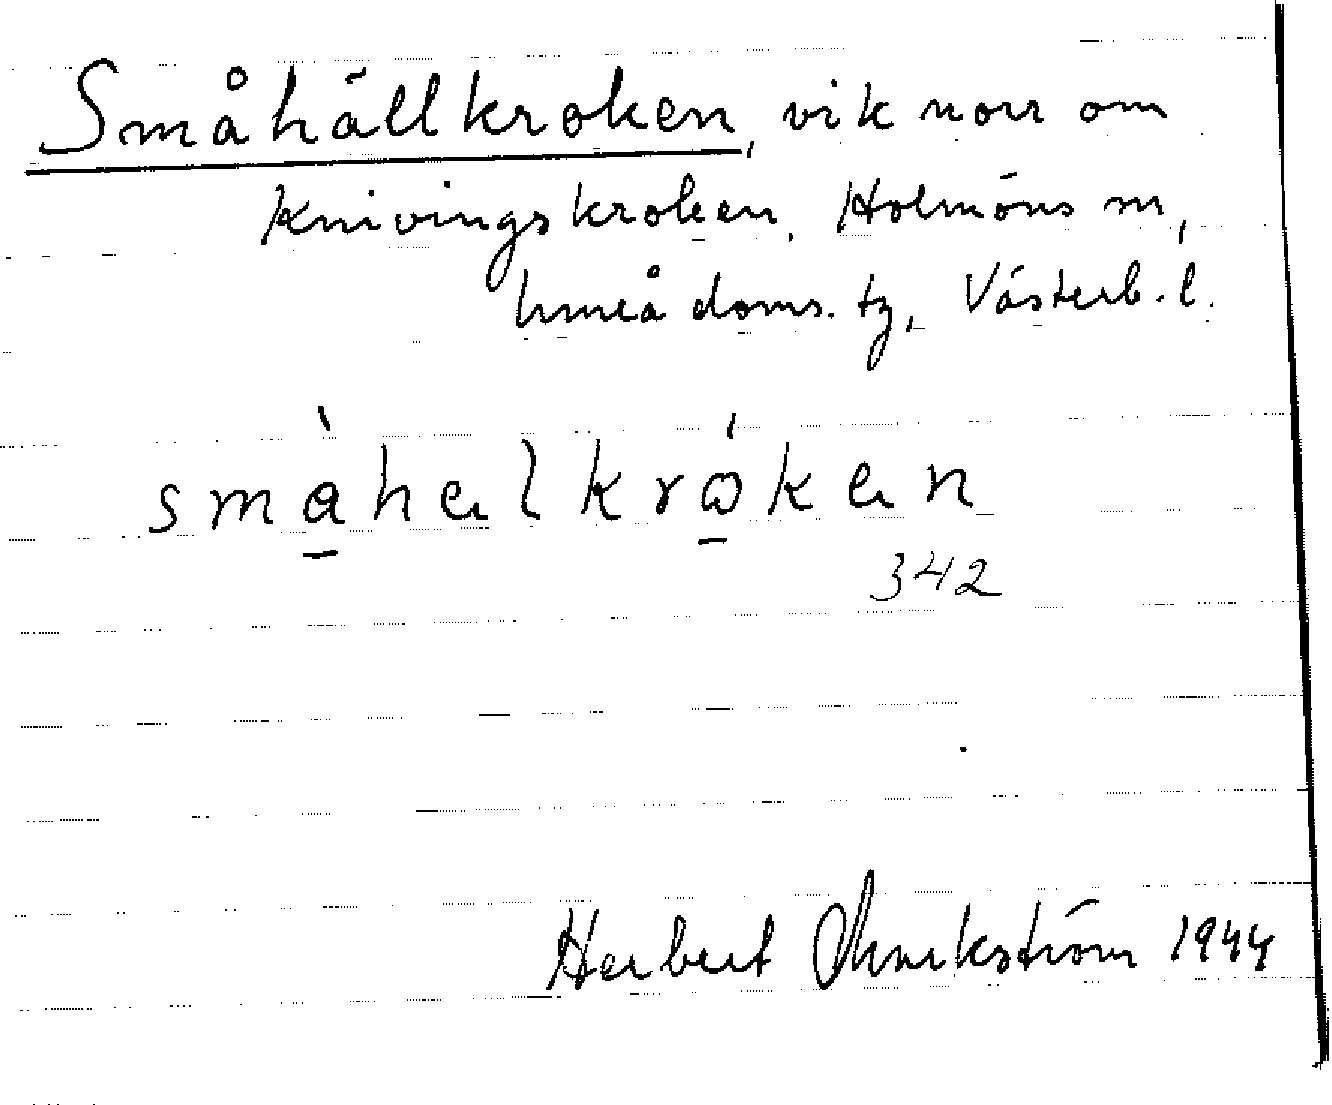 Småhällkroken, vik norr om
Knivingskroken, Holmöns sn,
Umeå doms. tg, Västerb. l.
småhelkroken
342
Herbert 1944